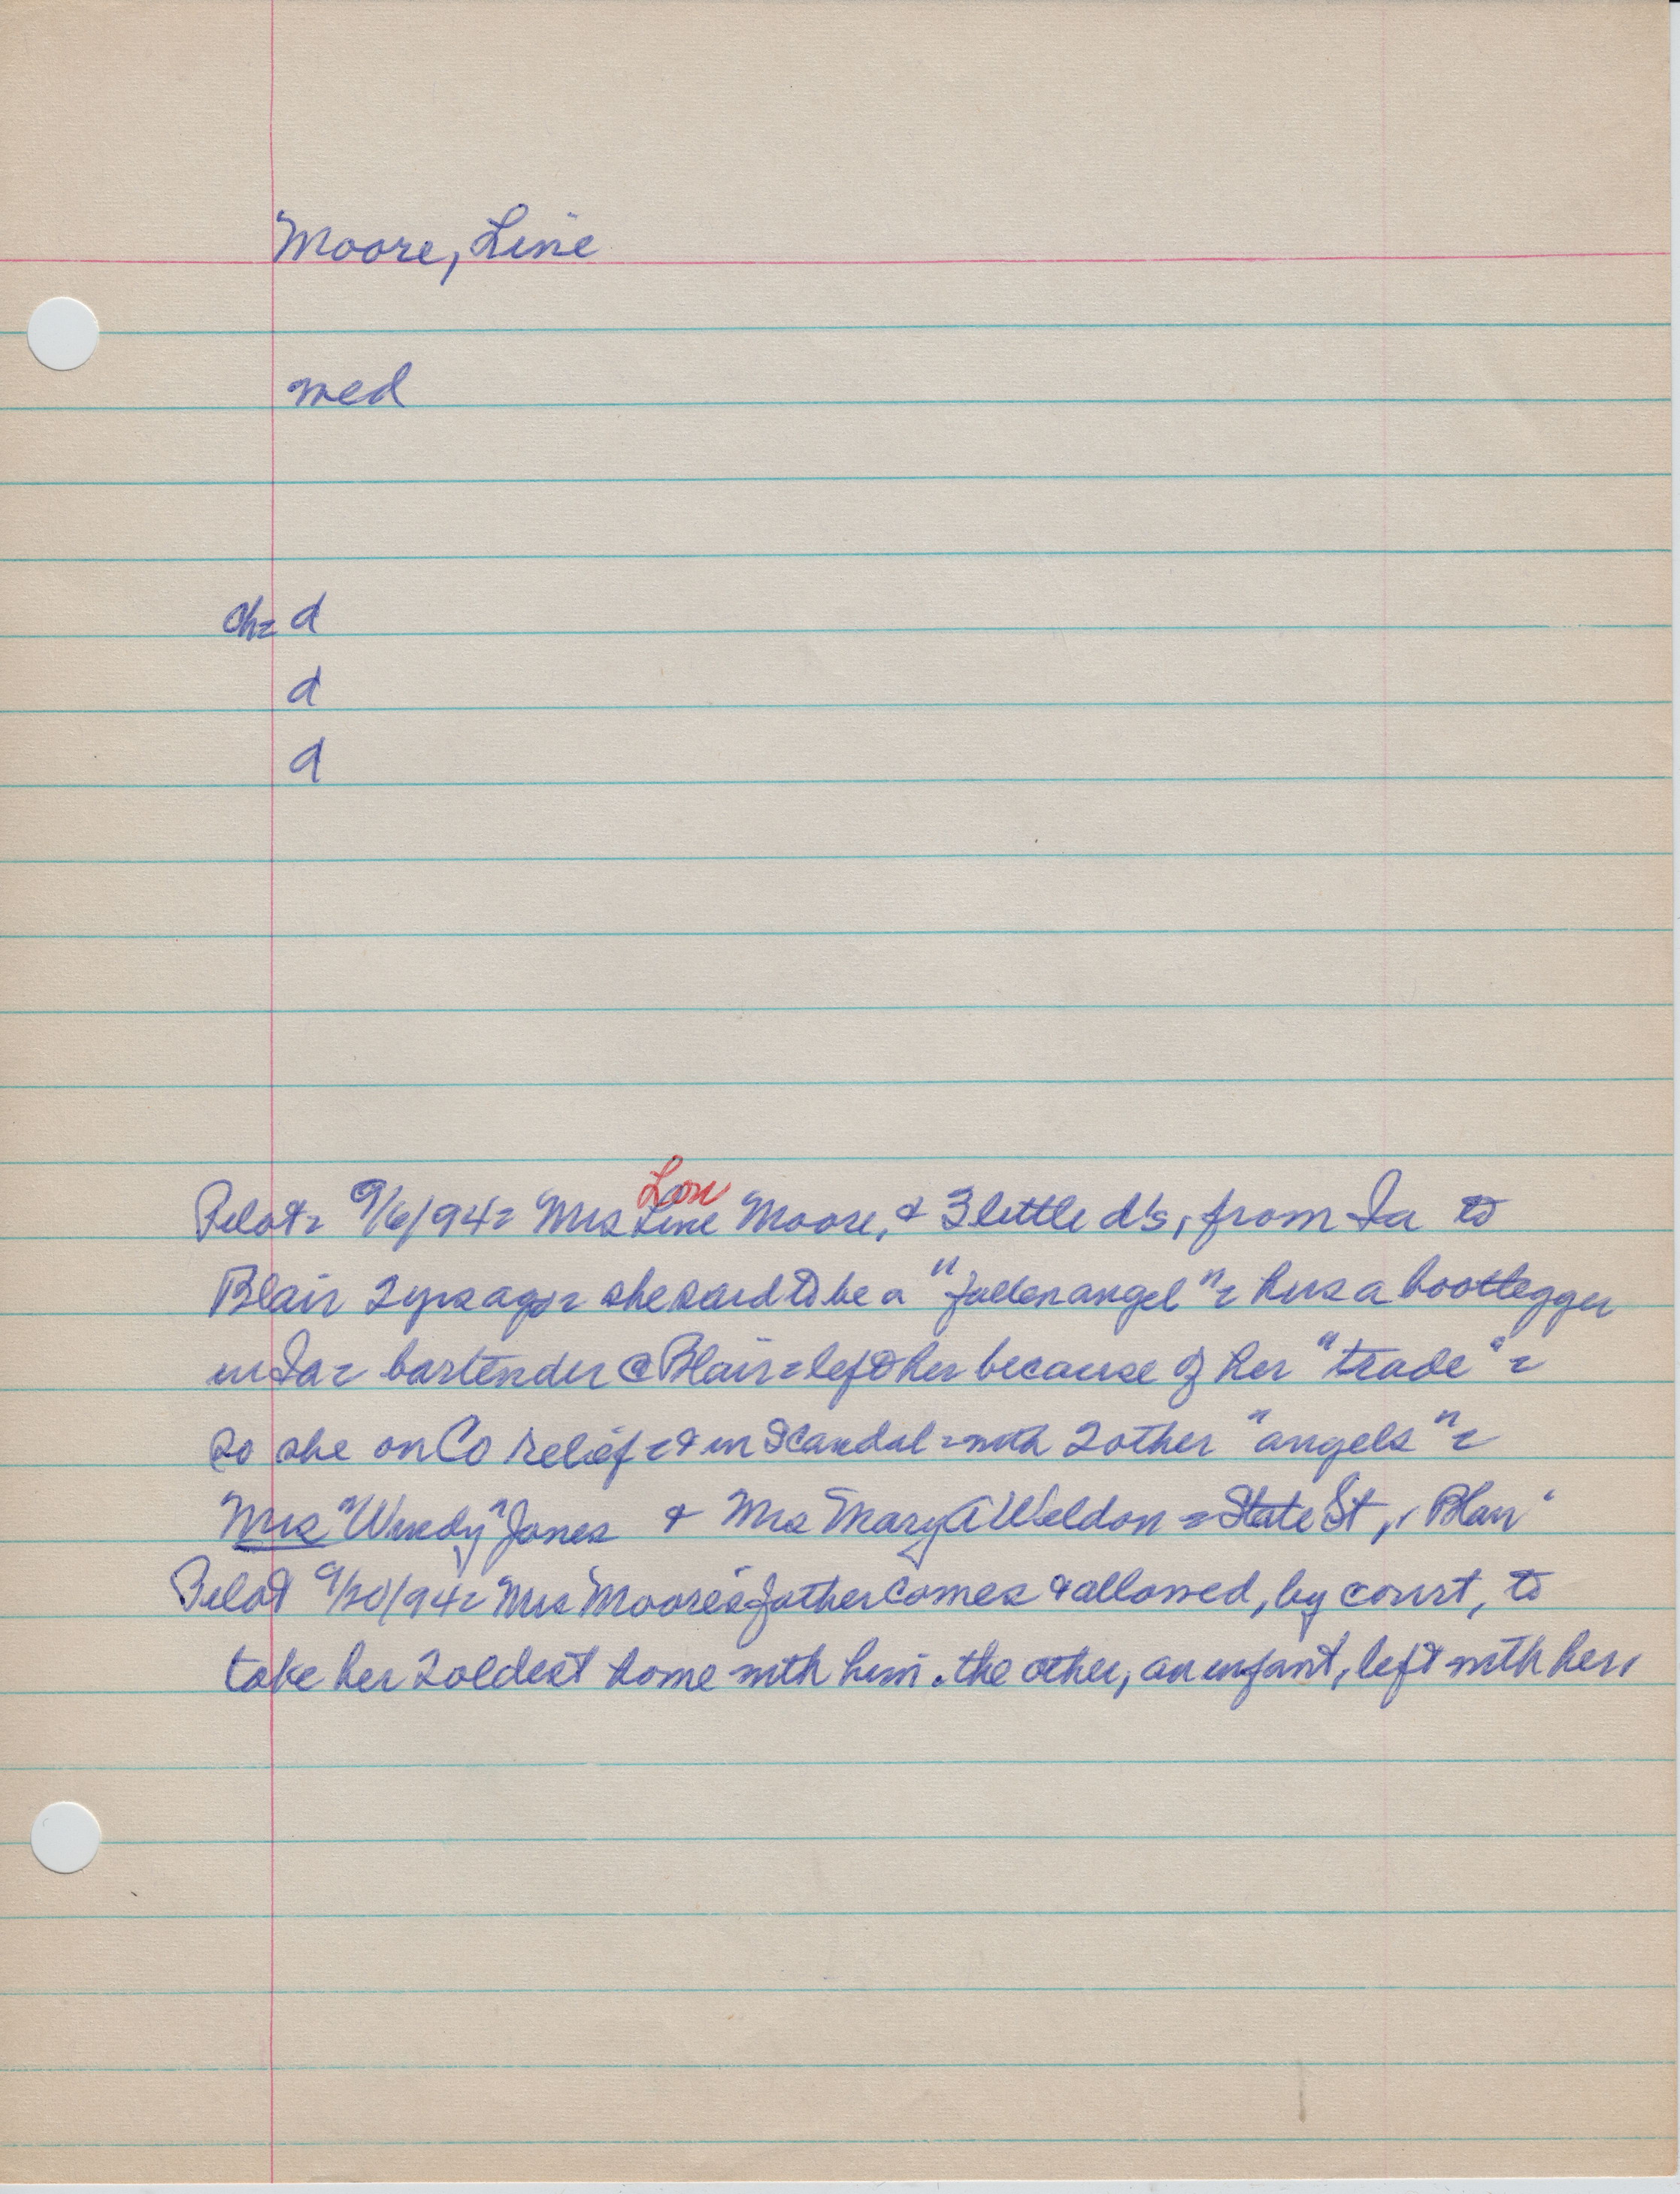 Moore, Line
med
Ch= d
d
d
Lou
Pilot= 9/6/94= Mrs Line Moore, & 3 little d's, from Ia to
Blair 2 yrs ago= she said to be a "fallen angel"= hus a bootlegger
in Ia= bartender @ Blair= left her because of her "trade"=
so she on Co relief= & in scandal= with 2 other "angels"=
Mrs "Windy" Jones & Mrs Mary A Weldon= State St, Blair
Pilot 9/20/94= Mrs Moore's father comes & allowed, by court, to
take her 2 oldest home with him. the other, an infant, left with her.